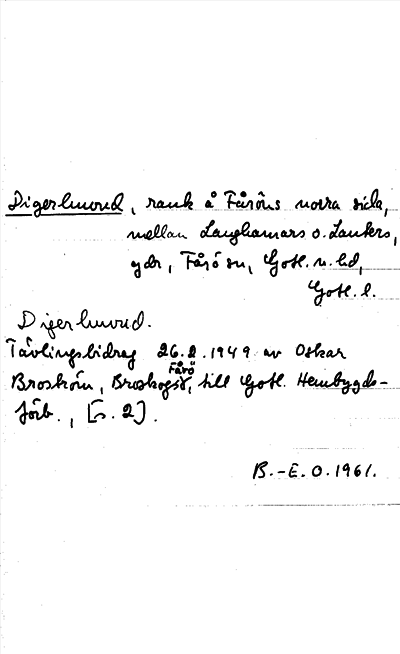 Digerhuvud, rauk å Fåröns norra sida,
mellan Langhamars o. Lauters,
ydr, Fårö sn, Gotl. n. hd,
Gotl. l.
Digerhuvud.
Tävlingsbidrag 26.2.1949 av Oskar
Broström, Broskogs, Fårö, till Gotl. Hembygds-
förb., [s. 2].
B.-E. O. 1961.